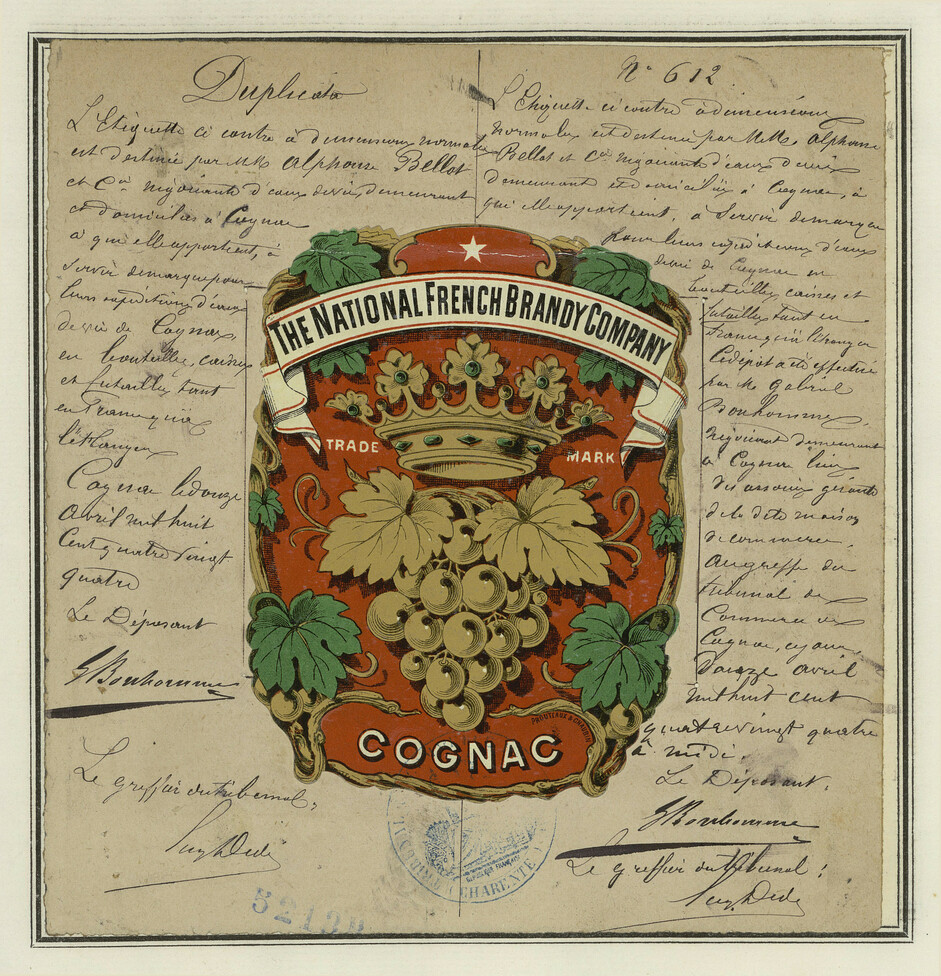 Duplicata
L'Etiquette ci contre à dimensions normales
est destinée par MM Alphonse Bellot
et Cie négociants d'eaux de vie, demeurant
et domiciliés à Cognac
à qui elle appartient, à
servir de marque pour
leurs expéditions d'eaux
de vie de Cognac,
en bouteilles, caisses
et futailles tant
en France qu'à
l'étranger
Cognac le douze
avril mil huit
cent quatre vingt
quatre
Le Déposant
GBonhomme
Le greffier du tribunal,
N° 612
L'Etiquette ci contre à dimensions
normales est destinée par MM. Alphonse
Bellot et Cie négociants d'eaux de vie
demeurant et domiciliés à Cognac, à
qui elle appartient, à servir de marque
pour leurs expéditions d'eaux
de vie de Cognac en
bouteilles, caisses et
futailles tant en
France qu'à l'étranger
Le dépôt a été effectué
par M. Gabriel
Bonhomme
négociant demeurant
à Cognac l'un
des associés gérants
de la dite maison
de commerce,
au greffe du
tribunal de
Commerce de
Cognac, ce jour
douze avril
mil huit cent
quatre vingt quatre
à midi.
Le Déposant,
GBonhomme
Le greffier du tribunal,
THE NATIONAL FRENCH BRANDY COMPANY
TRADE MARK
PROUTEAUX & CHAUVIN
COGNAC
CHARENTE